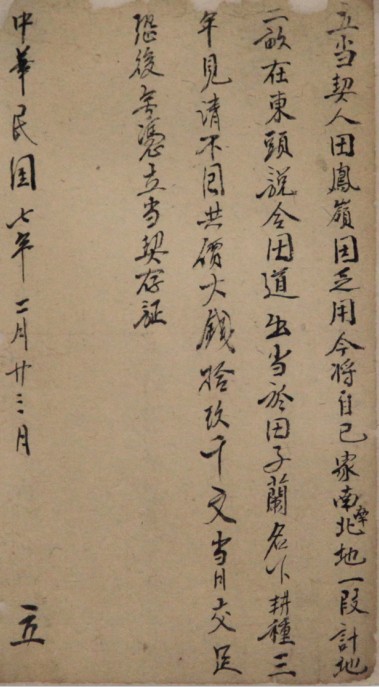 立当契人田鳳嶺因乏用今将自己家南北地一段計地
二畝在東頭說合田道出当於田子蘭名下耕種三
年見清不囘共價大錢拾玖千文当日交足
恐後無憑立当契存証
中華民国七年二月廿三日
立